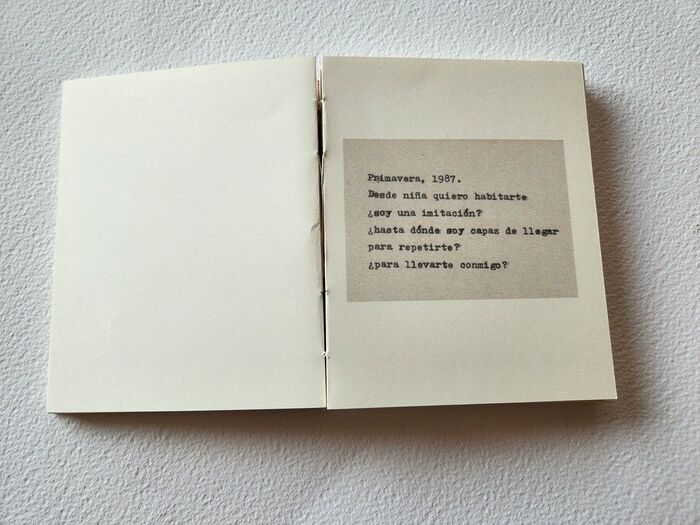 Primavera, 1987.
Desde niña quiero habitarte
¿soy una imitación?
¿hasta dónde soy capaz de llegar
para repetirte?
¿para llevarte conmigo?